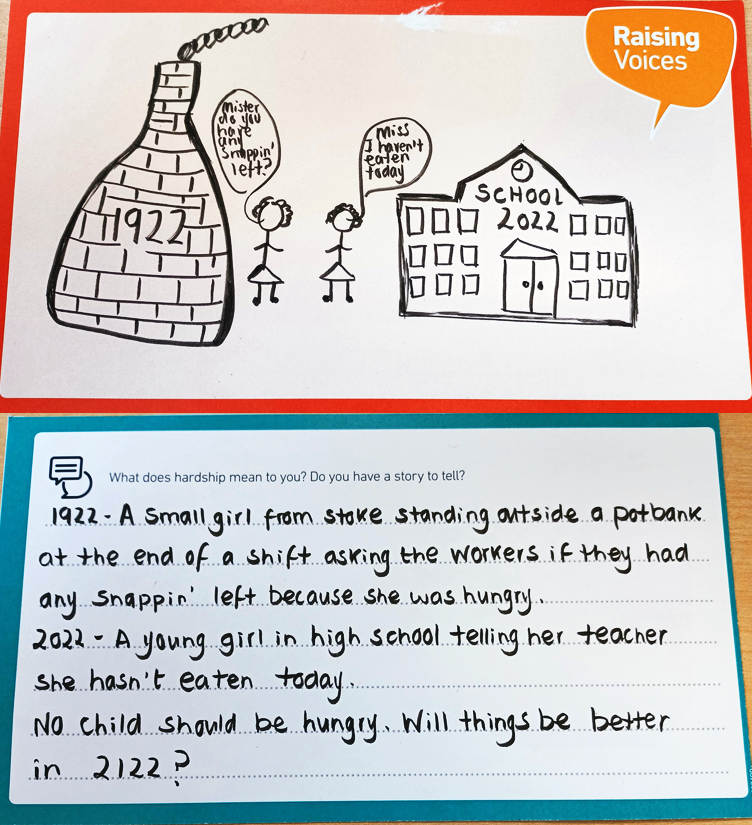 Raising
Voices
Mister
do you
have
any
snappin'
left?
Miss
I haven't
eaten
today
1922
SCHOOL
2022
What does hardship mean to you? Do you have a story to tell?
1922 - A small girl from stoke standing outside a potbank
at the end of a shift asking the workers if they had
any snappin' left because she was hungry.
2022 - A young girl in high school telling her teacher
she hasn't eaten today.
No child should be hungry. Will things be better
in 2122?